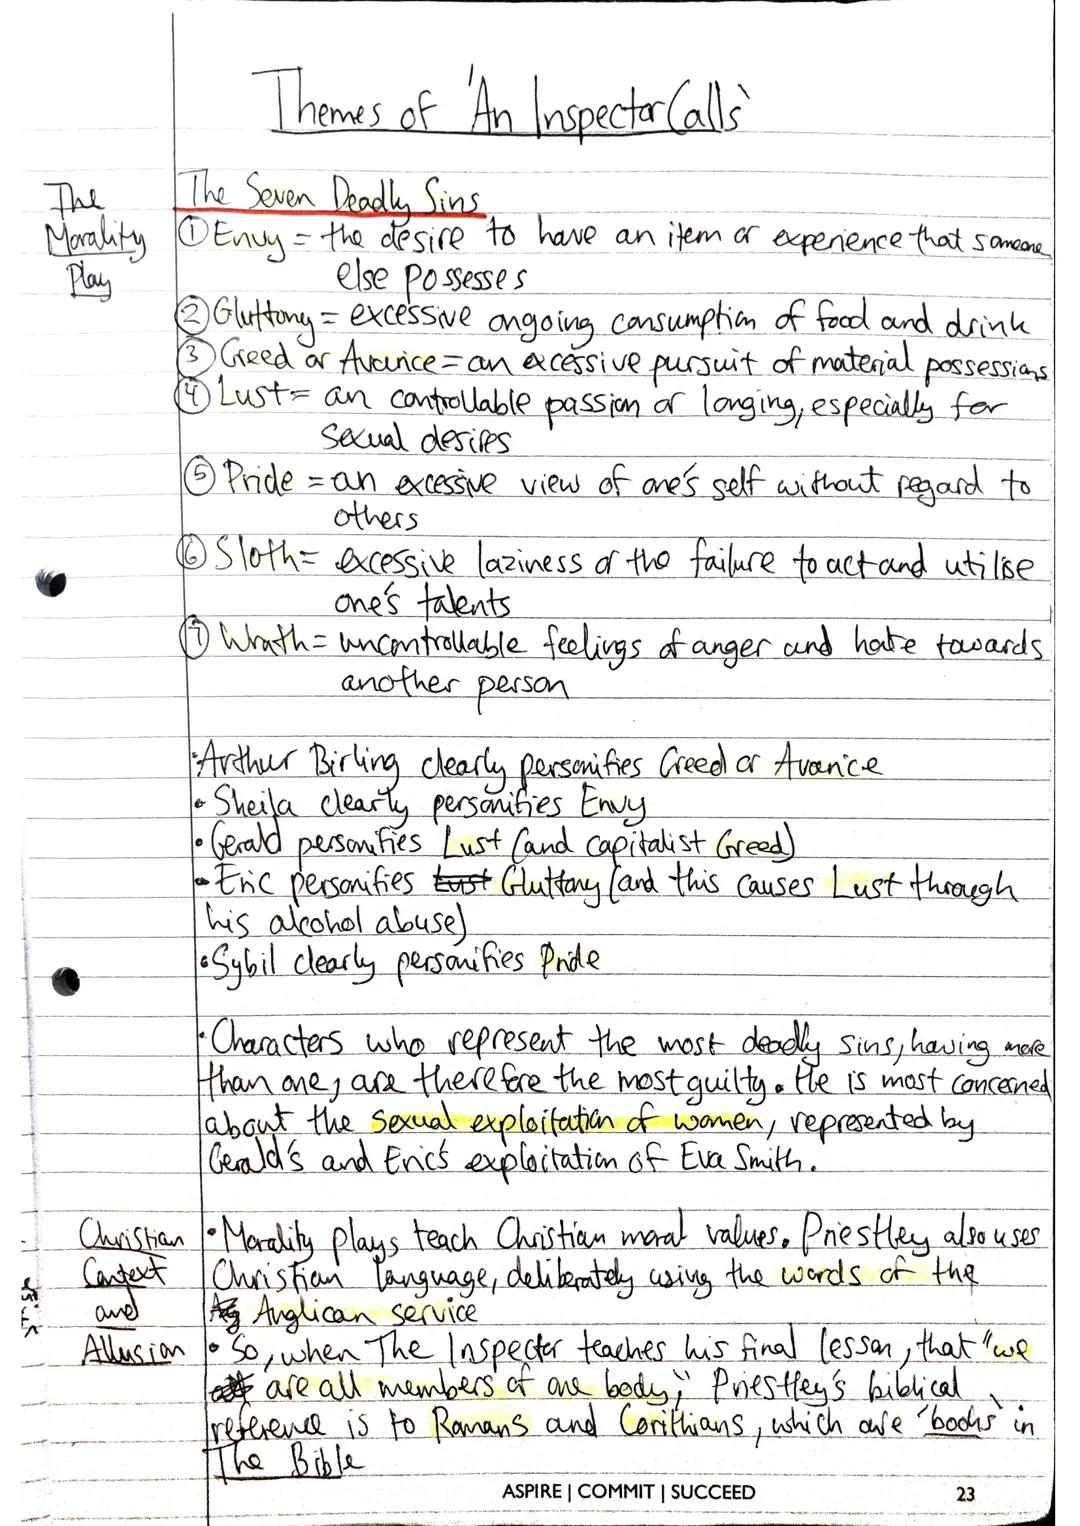 Themes of 'An Inspector Calls'
The
Morality
Play
The Seven Deadly Sins
① Envy = the desire to have an item or experience that someone
else possesses
② Gluttony = excessive ongoing consumption of food and drink
③ Greed or Avarice = an excessive pursuit of material possessions
④ Lust = an controllable passion or longing, especially for
sexual desires
⑤ Pride = an excessive view of one's self without regard to
others
⑥ Sloth = excessive laziness or the failure to act and utilise
one's talents
⑦ Wrath = uncontrollable feelings of anger and hate towards
another person
• Arthur Birling clearly personifies Greed or Avarice
• Sheila clearly personifies Envy
• Gerald personifies Lust (and capitalist Greed)
• Eric personifies Lust Gluttony (and this causes Lust through
his alcohol abuse)
• Sybil clearly personifies Pride
• Characters who represent the most deadly sins, having more
than one, are therefore the most guilty. He is most concerned
about the sexual exploitation of women, represented by
Gerald's and Eric's exploitation of Eva Smith.
Christian
Context
and
Allusion
• Morality plays teach Christian moral values. Priestley also uses
Christian language, deliberately using the words of the
Anglican service
• So, when The Inspector teaches his final lesson, that "we
are all members of one body," Priestley's biblical
reference is to Romans and Corithians, which are 'books' in
The Bible
ASPIRE | COMMIT | SUCCEED
23